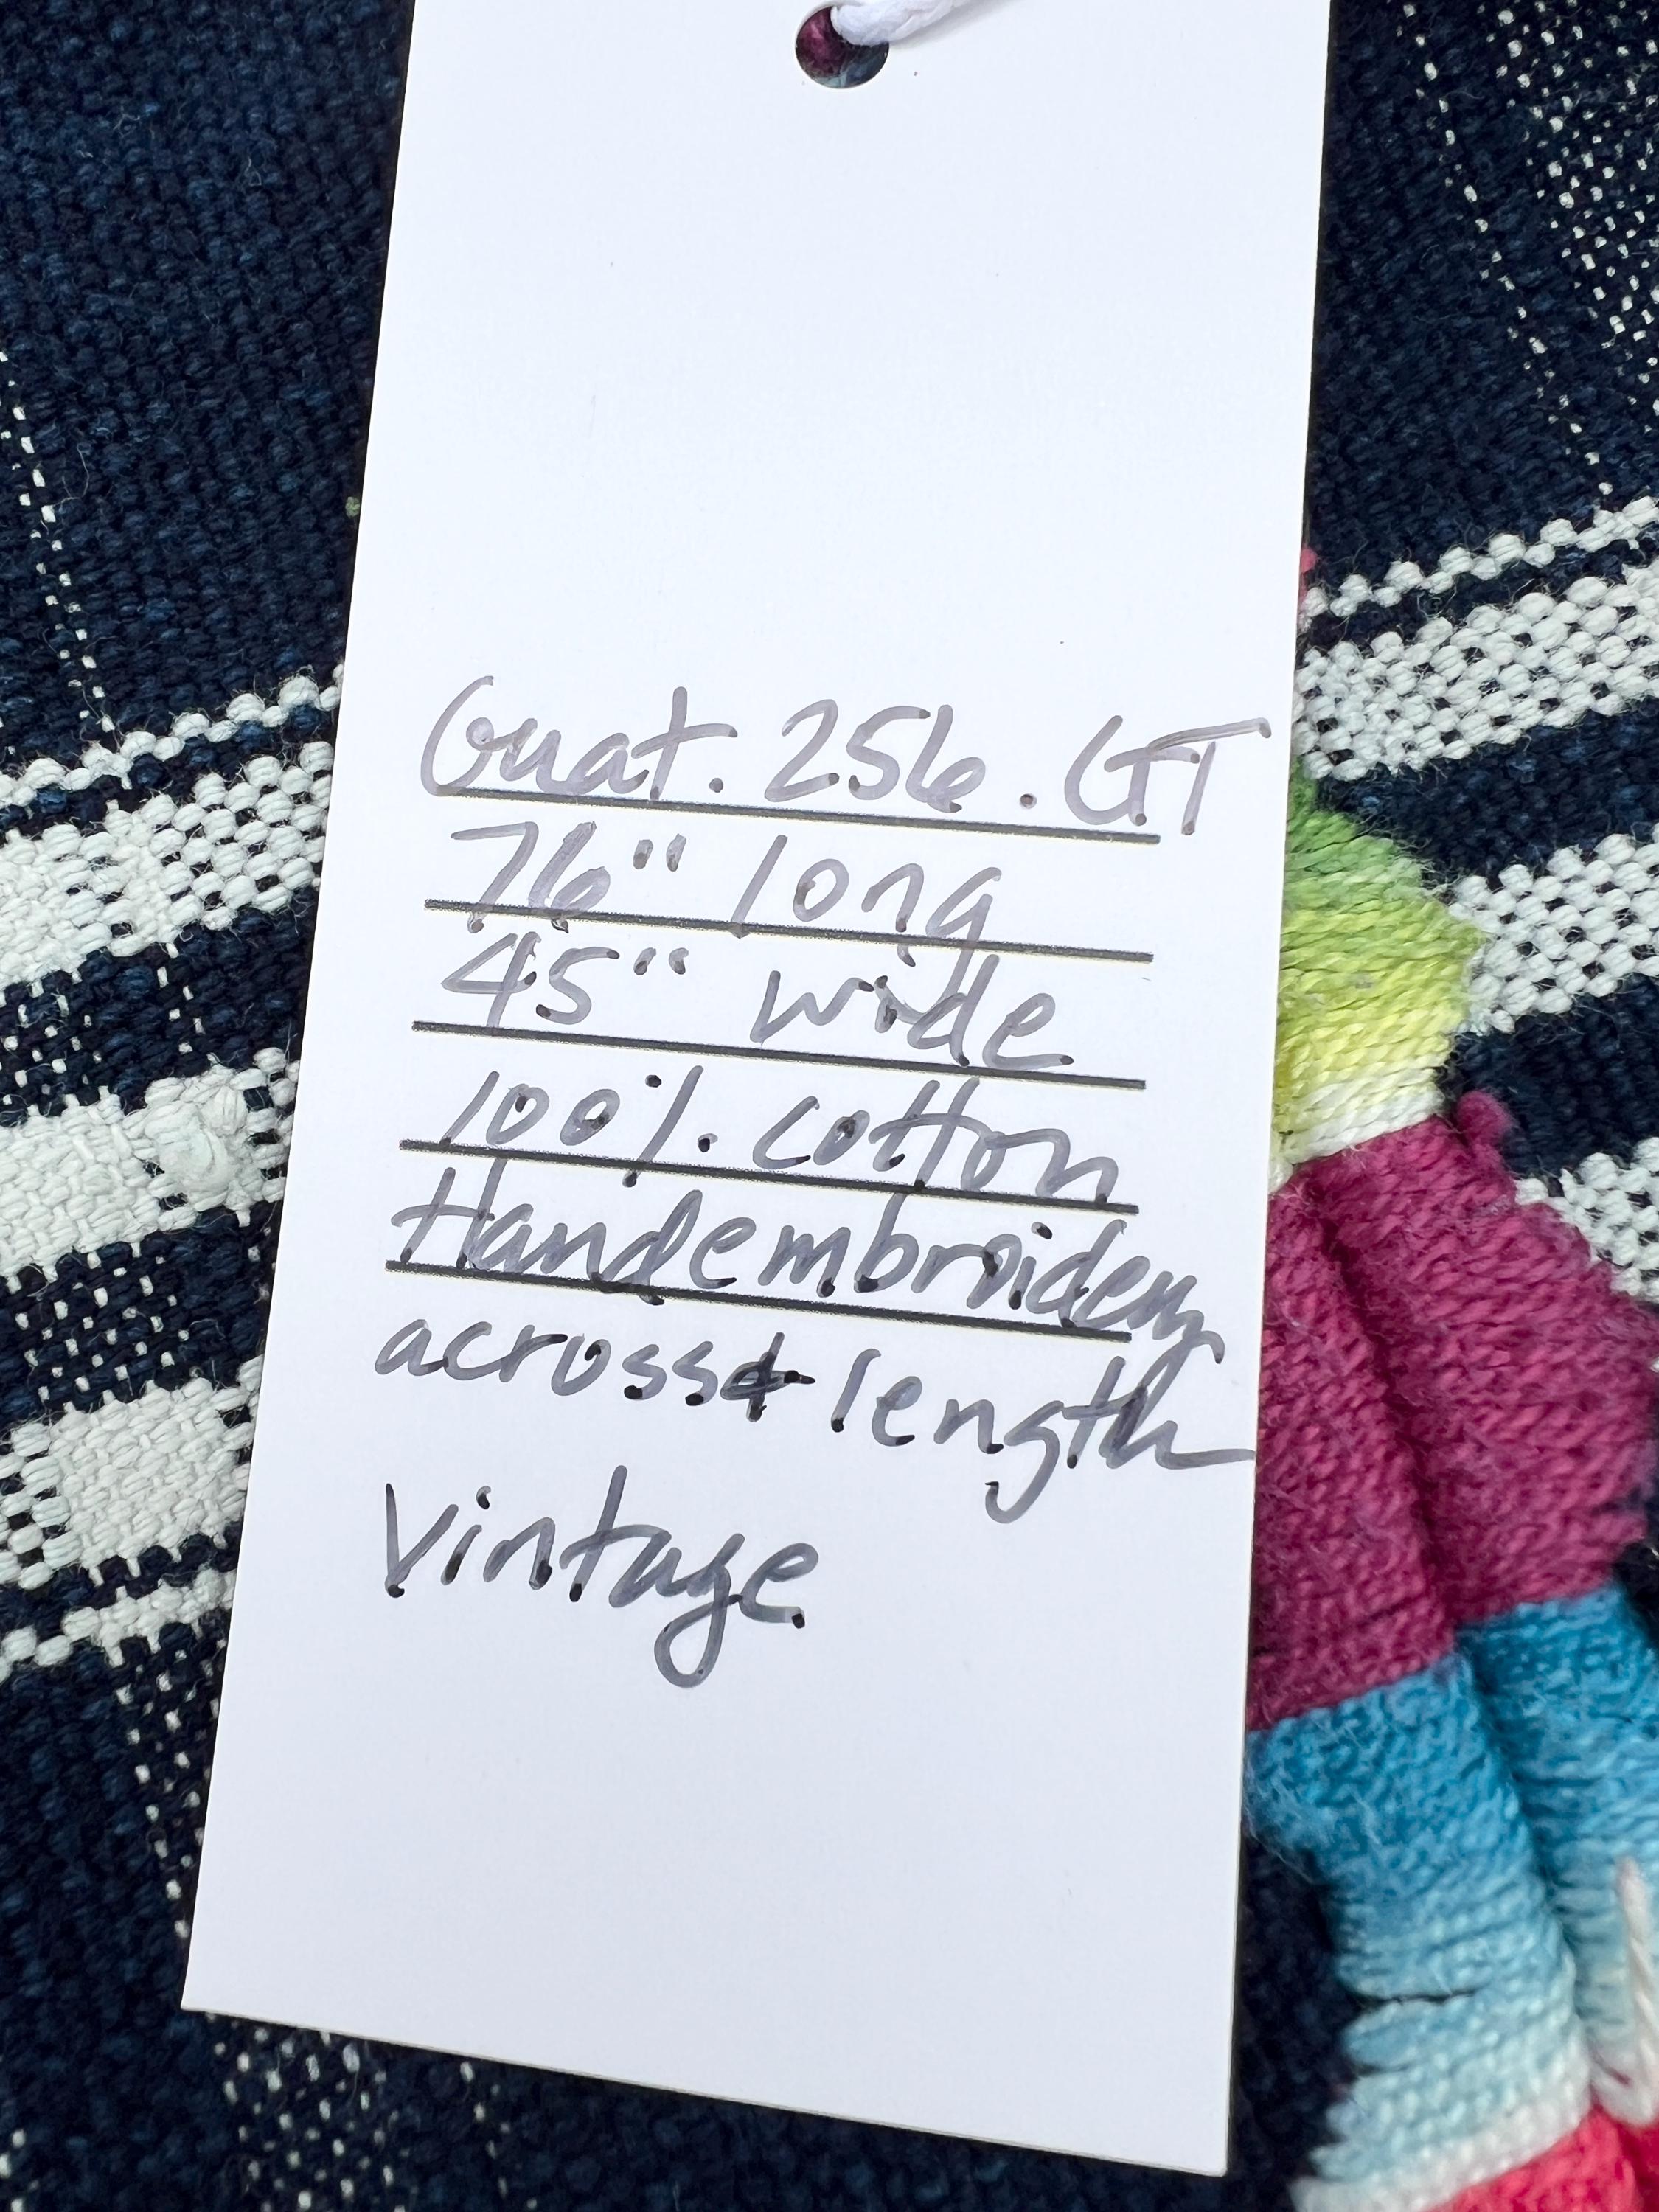 Guat. 256. GT
76" long
45" wide
100%. cotton
Hand embroidery
across & length
Vintage